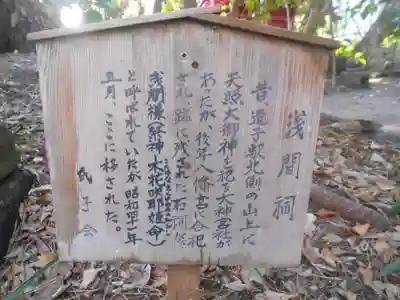 浅間祠
昔、逗子駅北側の山上に
天照大御神を祀る大神宮社が
あったが後年八幡宮に合祀
され、跡に残された石祠が
浅間様(祭神 木花咲耶姫命)
と呼ばれていたが昭和四一年
五月、ここに移された。
氏子会